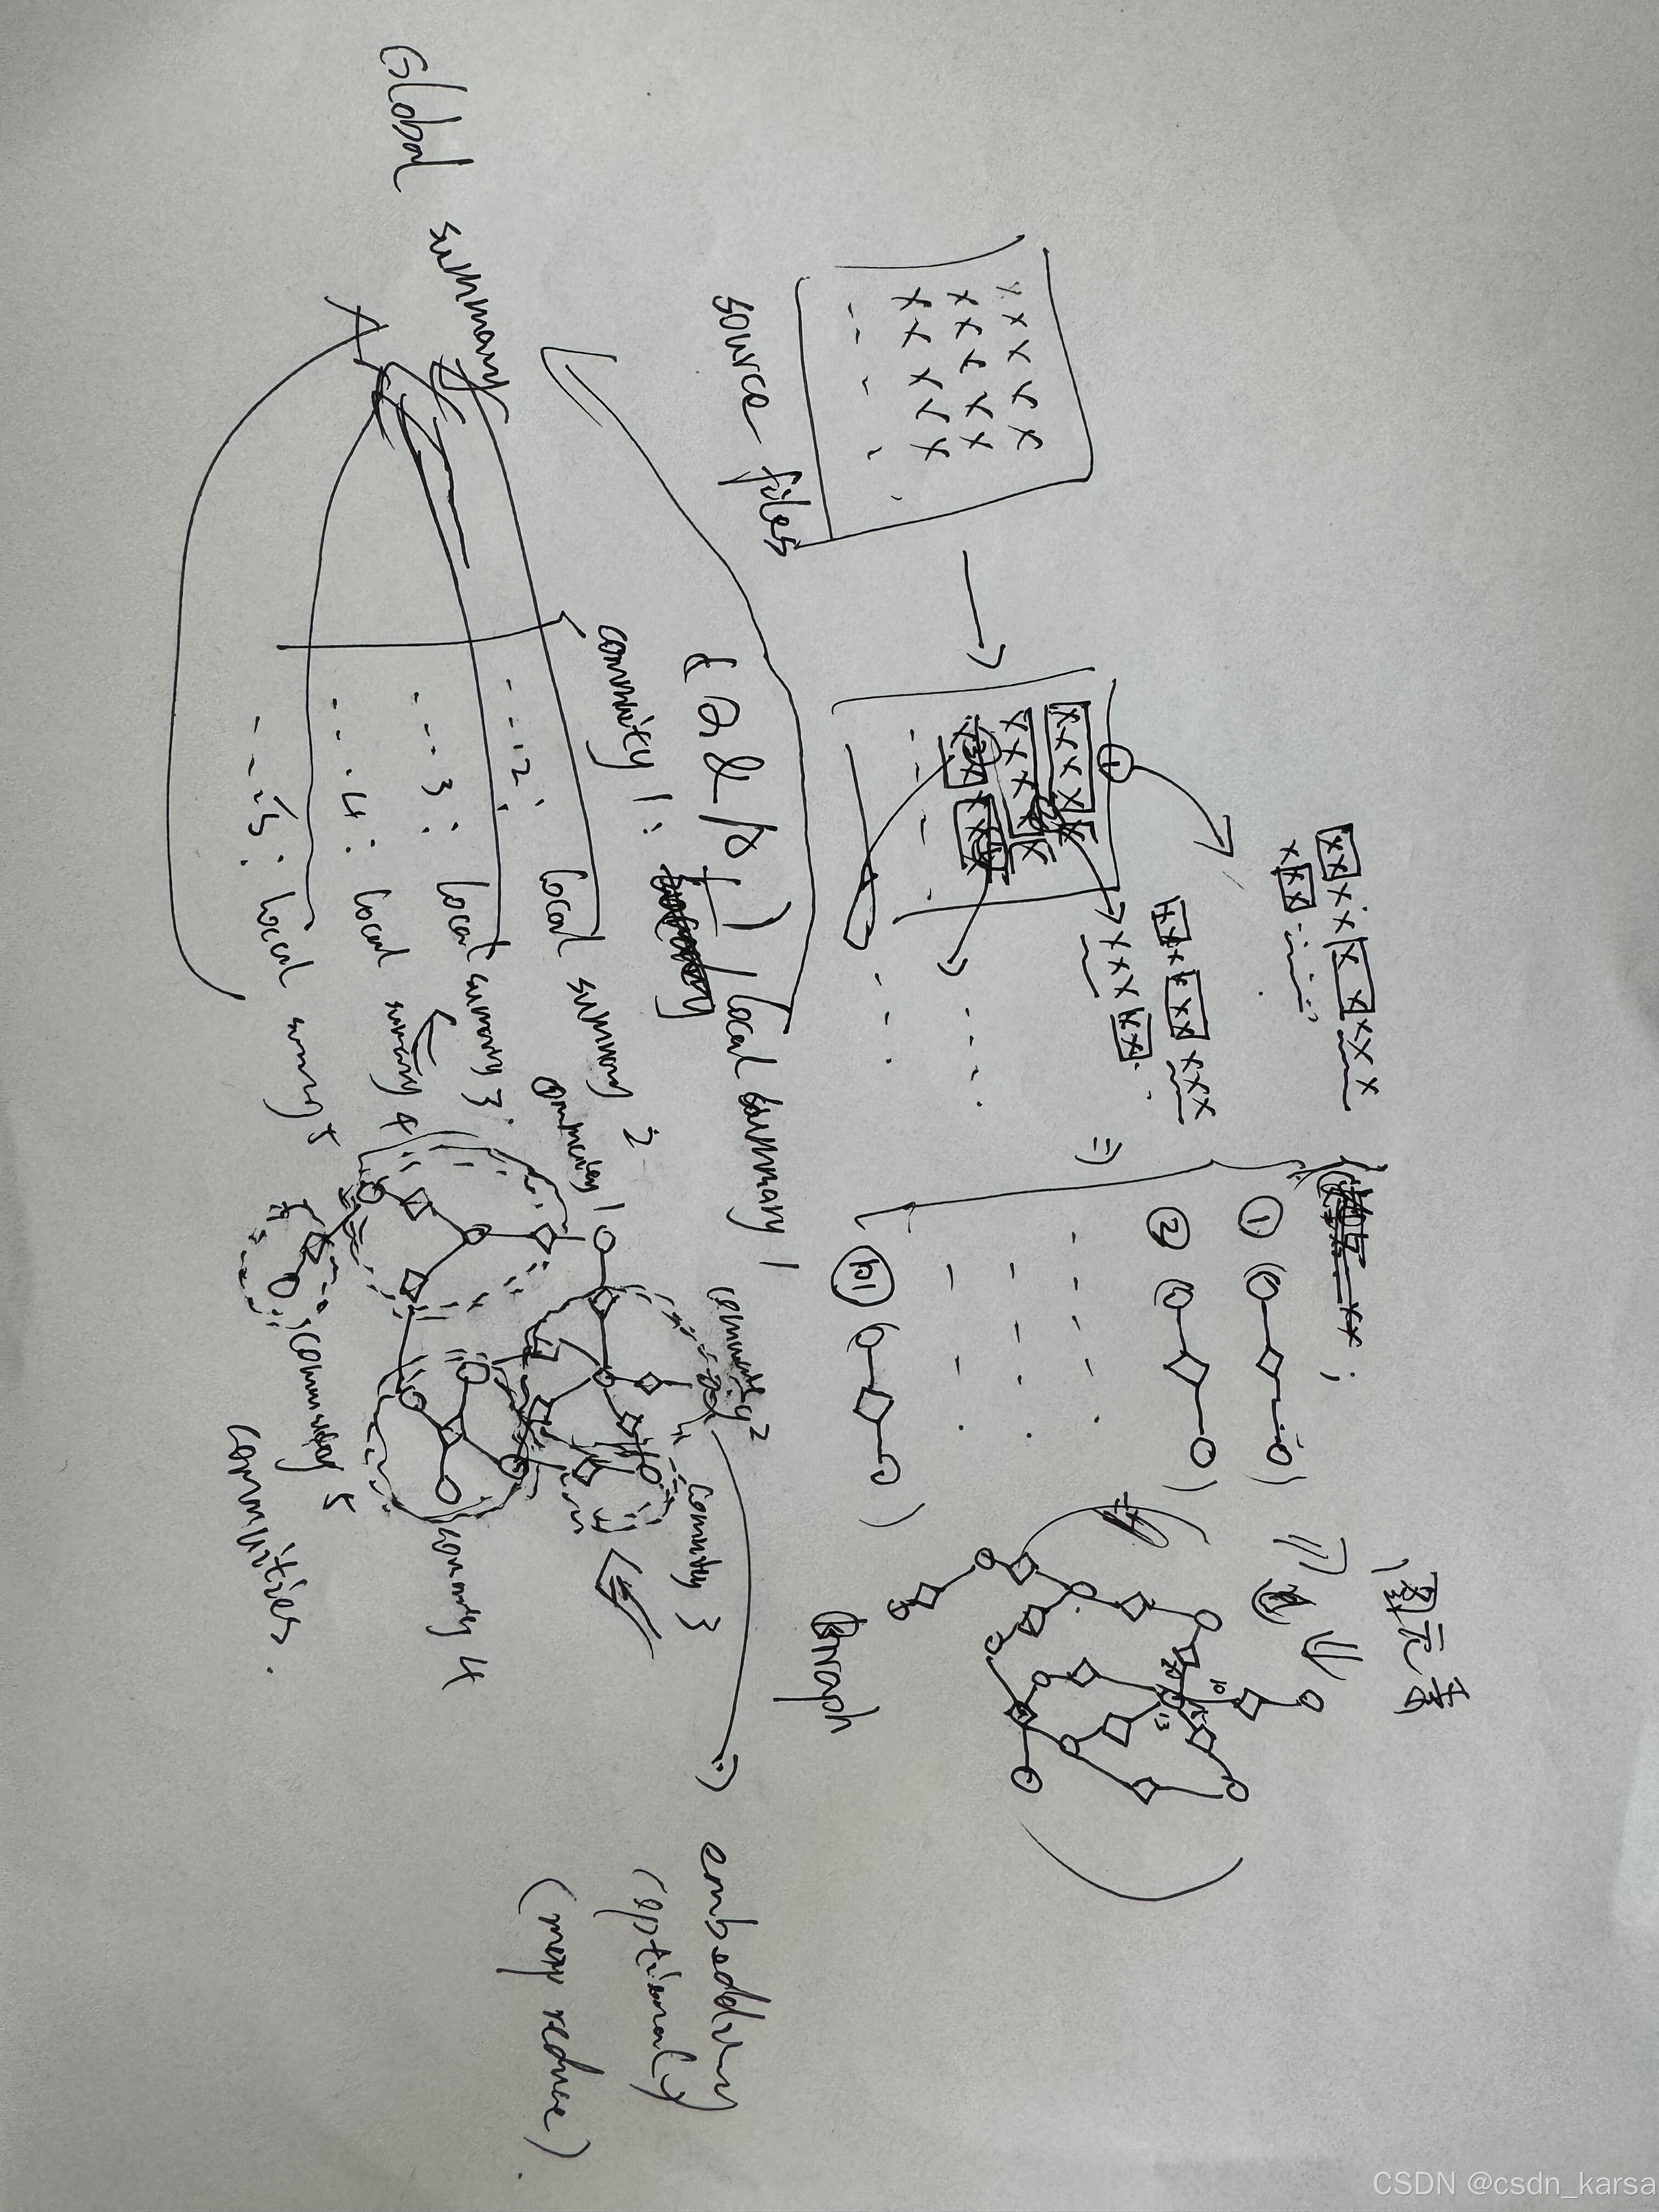 图元素
①
②
source files
Graph
(Q & A +)
community 1: local summary 1
2: local summary 2
3: local summary 3
4: local summary 4
5: local summary 5
Global summary
community 1
community 2
community 3
community 4
community 5
communities.
embedding
(optionally
(map reduce).
CSDN @csdn_karsa